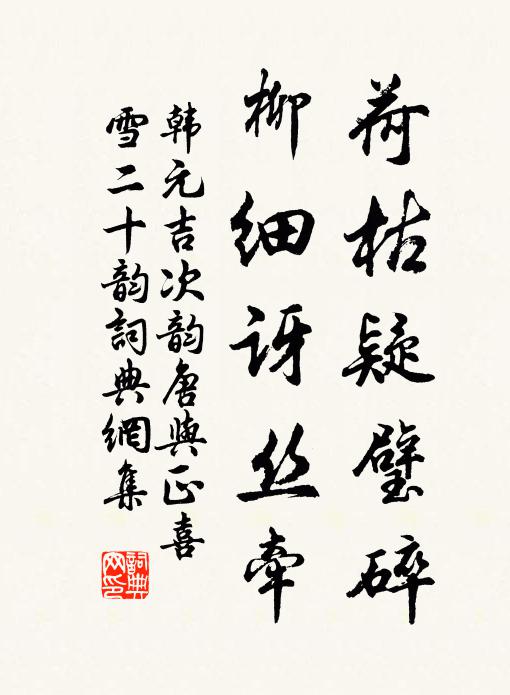 荷枯疑璧碎
柳细讶丝牵
韩元吉次韵唐與正喜
雪二十韵詞典網集
詞典網印